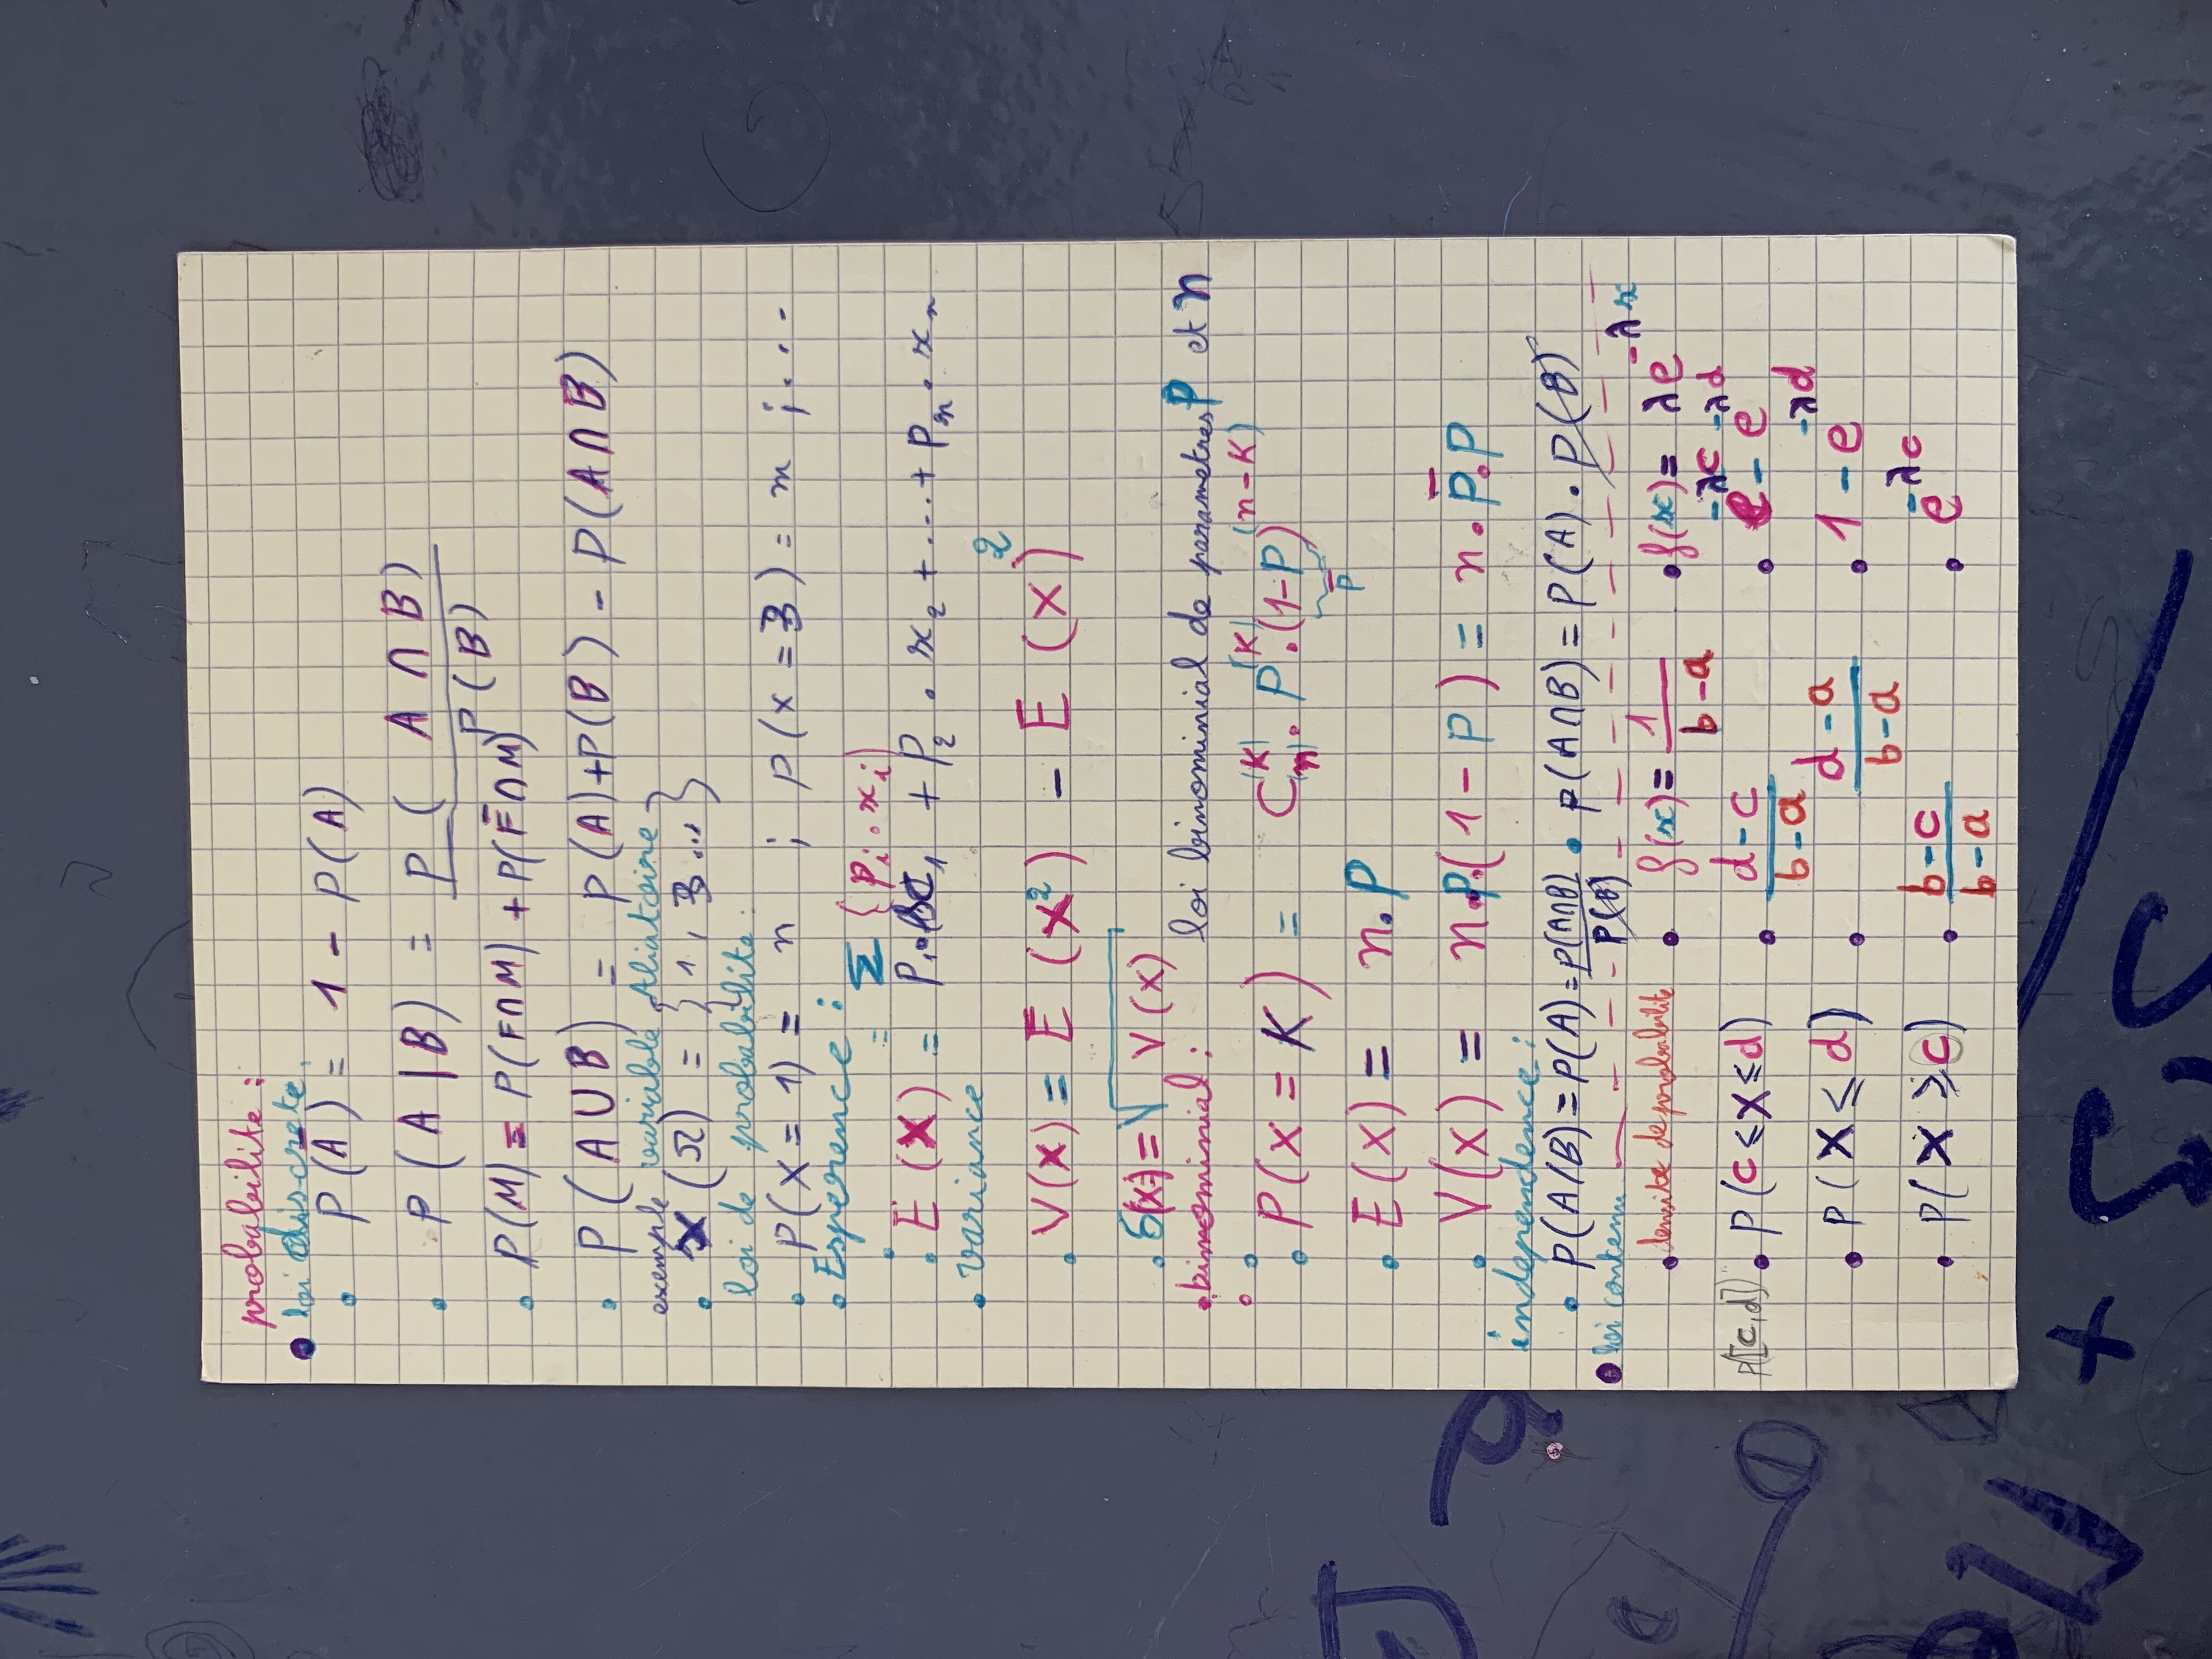 probabilite :
loi discrete.
P(Ā) = 1 - P(A)
P(A|B) = P(A∩B) / P(B)
P(M) = P(F∩M) + P(F̄∩M)
P(A∪B) = P(A)+P(B) - P(A∩B)
exemple variable Aliatoire
X(Ω) = {1, 3...}
loi de probabilite :
P(X = 1) = n ; P(X = 3) = m ; ....
Esperence :
= Σ {Pi . xi}
E(X) = P1 . x1 + P2 . x2 + ... + Pn . xn
variance
V(X) = E(X²) - E(X)²
δ(x) = √V(X)
binominial : loi binominial de parametres P et n
P(X = K) = C(n)^(K) . P^(K) . (1-P)^(n-K)
P̄
E(X) = n.P
V(X) = n.P.(1-P) = n.P̄.P
independence :
P(A/B) = P(A) = P(A∩B)/P(B) • P(A∩B) = P(A) . P(B)
loi contenu
densite de probabilite • f(x) = 1/(b-a) • f(x) = λe^(-λx)
P([c,d]) • P(c ≤ X ≤ d) • (d-c)/(b-a) • e^(-λc) - e^(-λd)
P(X ≤ d) • (d-a)/(b-a) • 1 - e^(-λd)
P(X ≥ c) • (b-c)/(b-a) • e^(-λc)